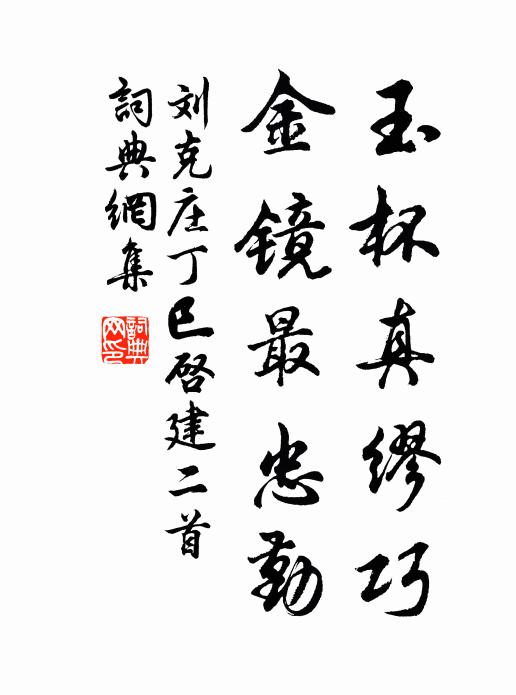 玉杯真缪巧
金镜最忠勤
刘克庄丁巳启建二首
詞典網集
詞典网印